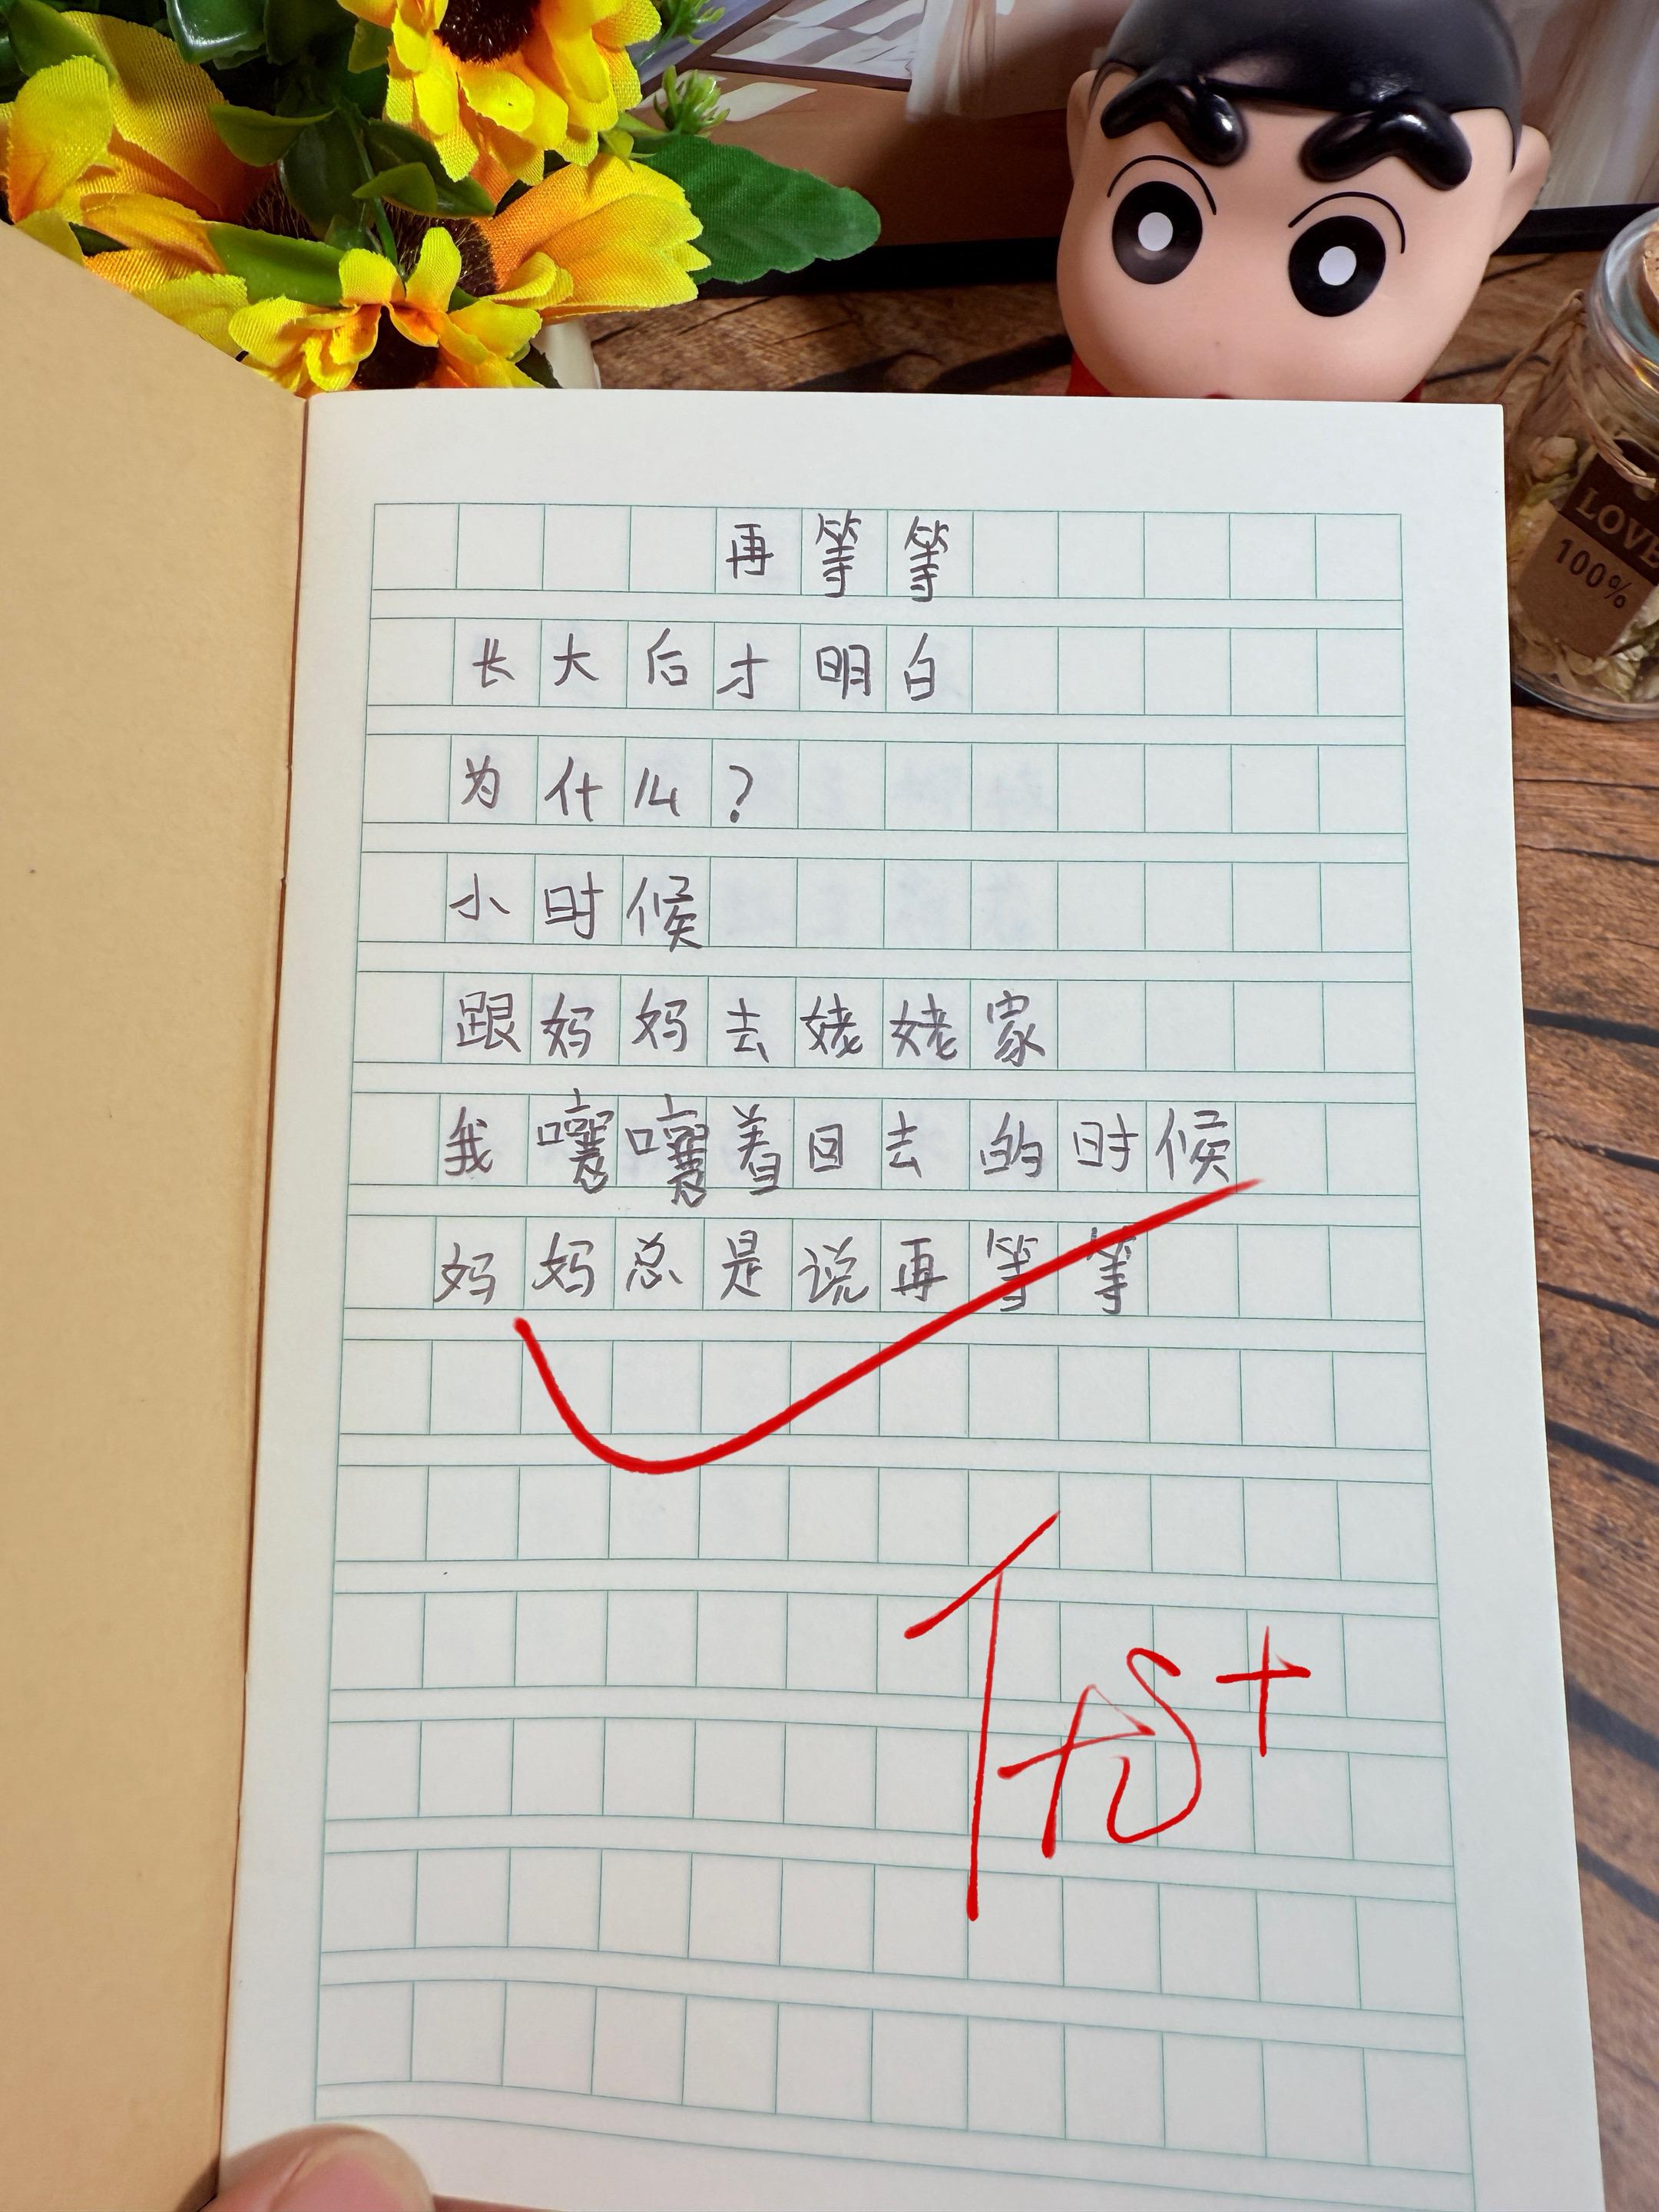 再等等
长大后才明白
为什么?
小时候
跟妈妈去姥姥家
我嚷嚷着回去的时候
妈妈总是说再等等
优+
LOVE
100%